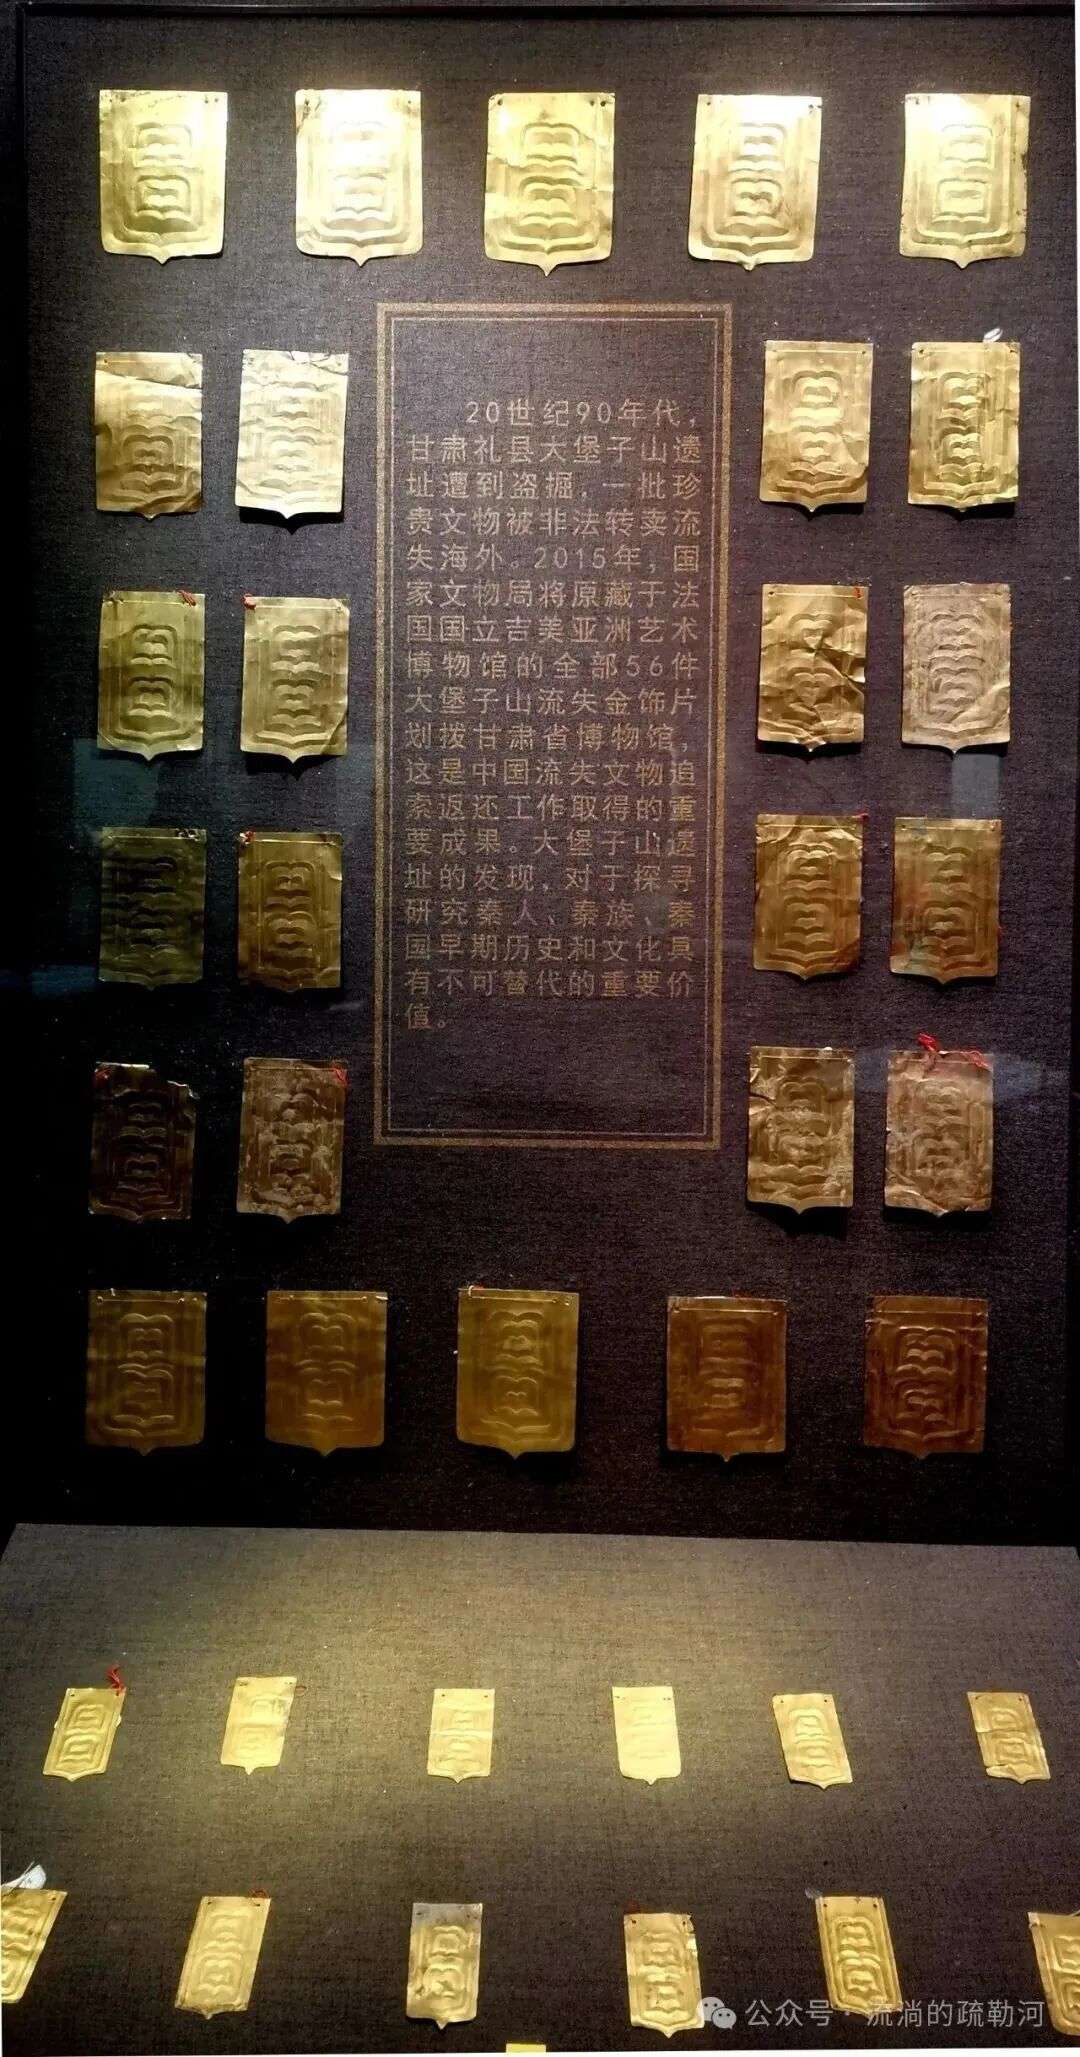 20世纪90年代，
甘肃礼县大堡子山遗
址遭到盗掘，一批珍
贵文物被非法转卖流
失海外。2015年，国
家文物局将原藏于法
国国立吉美亚洲艺术
博物馆的全部56件
大堡子山流失金饰片
划拨甘肃省博物馆，
这是中国流失文物追
索返还工作取得的重
要成果。大堡子山遗
址的发现，对于探寻
研究秦人、秦族、秦
国早期历史和文化具
有不可替代的重要价
值。
公众号·流淌的疏勒河